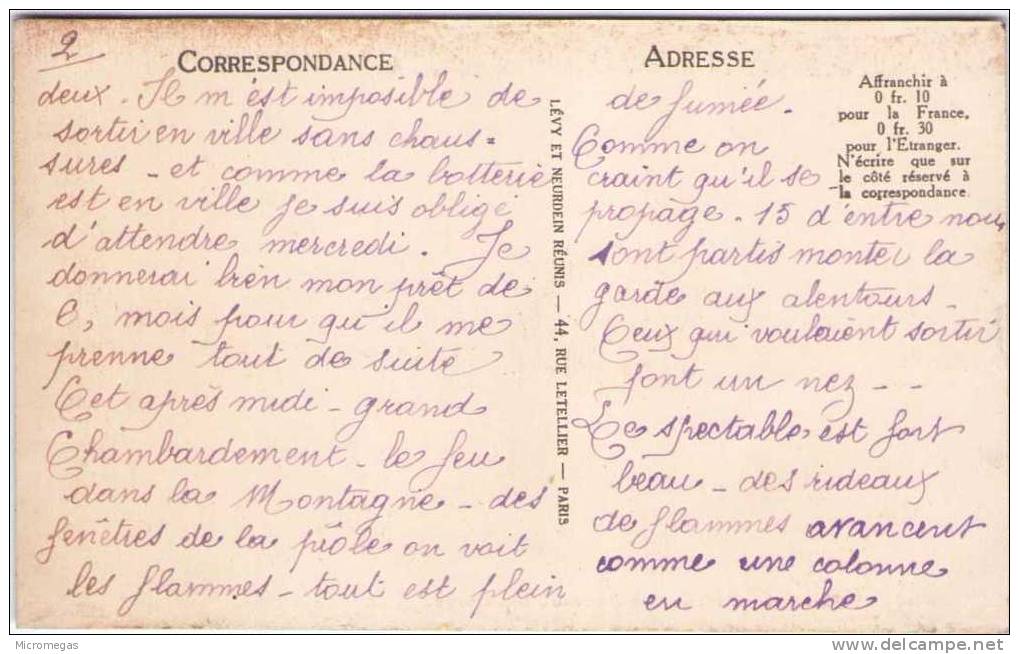 2
CORRESPONDANCE
deux. Il m'est imposible de
sortir en ville sans chaus=
sures - et comme la botterie
est en ville je suis obligé
d'attendre mercredi. Je
donnerai bien mon prêt de
6, mois pour qu'il me
prenne tout de suite
Cet après midi - grand
Chambardement - le feu
dans la Montagne - des
fenêtres de la piôle on voit
les flammes - tout est plein
LÉVY ET NEURDEIN RÉUNIS — 44, RUE LETELLIER — PARIS
ADRESSE
Affranchir à
0 fr. 10
pour la France,
0 fr. 30
pour l'Etranger.
N'écrire que sur
le côté réservé à
la correspondance.
de fumée.
Comme on
craint qu'il se
propage. 15 d'entre nous
sont partis monter la
garde aux alentours -
Ceux qui voulaient sortir
font un nez - -
Le spectable est fort
beau - des rideaux
de flammes avancent
comme une colonne
en marche
Micromegas
www.delcampe.net